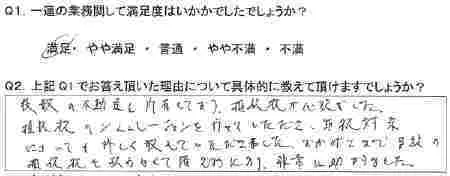 Q1. 一連の業務関して満足度はいかかでしたでしょうか?
満足・ やや満足 ・ 普通 ・ やや不満 ・ 不満
Q2. 上記Q1でお答え頂いた理由について具体的に教えて頂けますでしょうか?
複数の不動産を所有しており、相続税が心配でした。
相続税のシミュレーションを行っていただき、節税対策
についても詳しく教えていただきました。おかげさまで
相続税を 非常に助かりました。